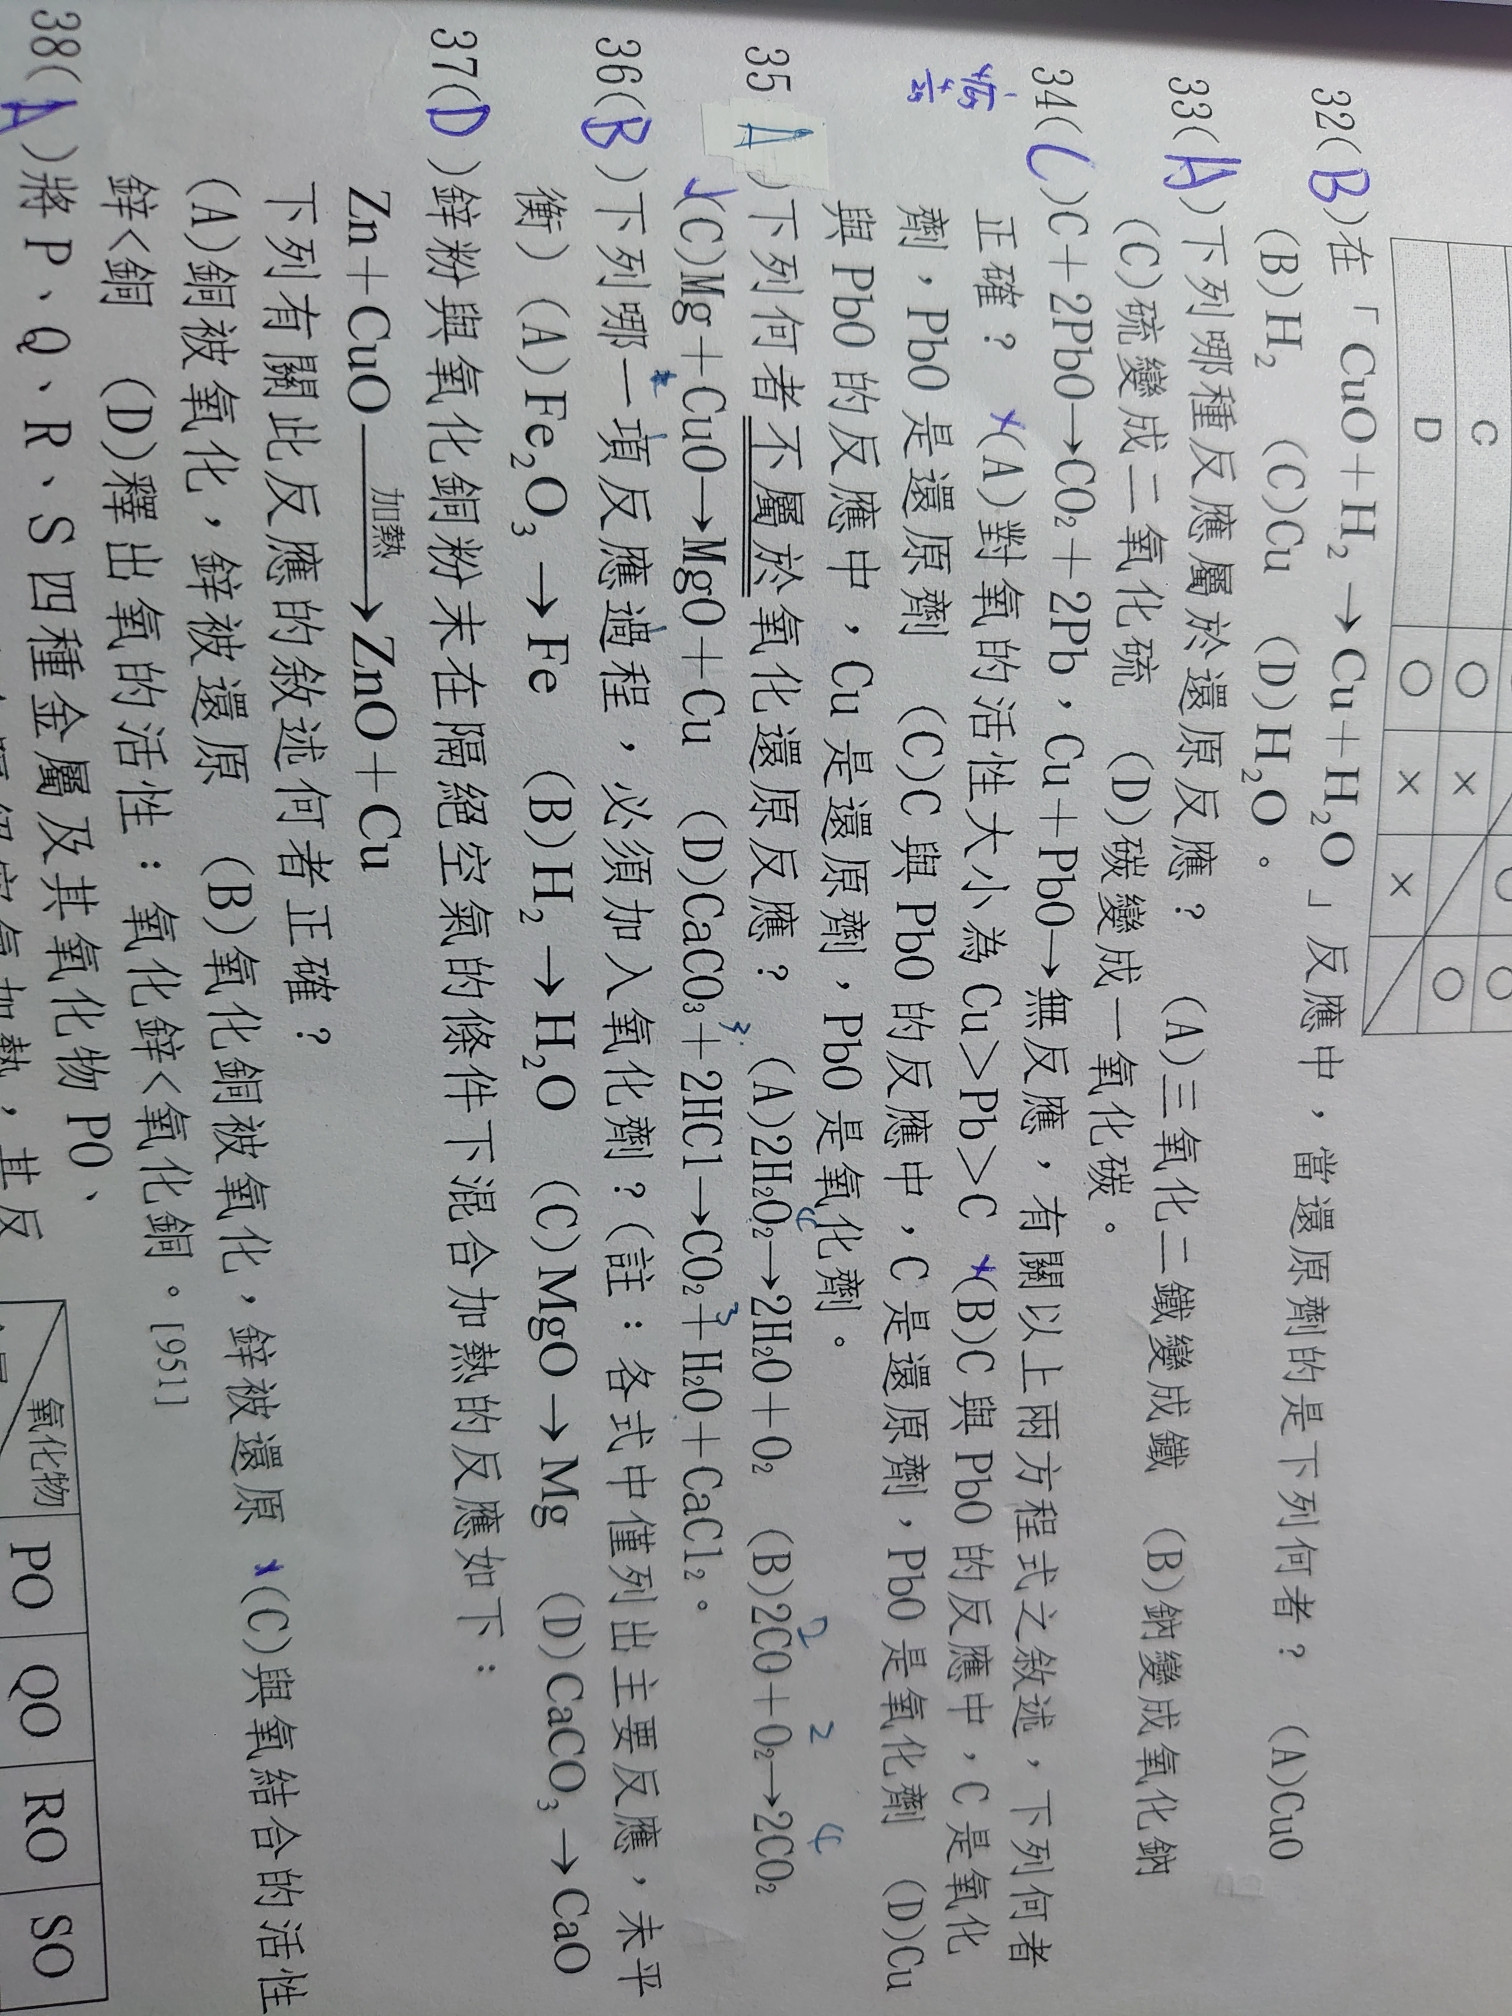 C ○ × ○
D ○ × × ○
32(B)在「CuO+H₂→Cu+H₂O」反應中，當還原劑的是下列何者？ (A)CuO
(B)H₂ (C)Cu (D)H₂O。
33(A)下列哪種反應屬於還原反應？ (A)三氧化二鐵變成鐵 (B)鈉變成氧化鈉
(C)硫變成二氧化硫 (D)碳變成一氧化碳。
34(C)C+2PbO→CO₂+2Pb，Cu+PbO→無反應，有關以上兩方程式之敘述，下列何者
正確？ ×(A)對氧的活性大小為 Cu>Pb>C ×(B)C 與 PbO 的反應中，C 是氧化
劑，PbO 是還原劑 (C)C 與 PbO 的反應中，C 是還原劑，PbO 是氧化劑 (D)Cu
與 PbO 的反應中，Cu 是還原劑，PbO 是氧化劑。
4 2 2 4
35 A )下列何者不屬於氧化還原反應？ (A)2H₂O₂→2H₂O+O₂ (B)2CO+O₂→2CO₂
3 3
(C)Mg+CuO→MgO+Cu (D)CaCO₃+2HCl→CO₂+H₂O+CaCl₂。
36(B)下列哪一項反應過程，必須加入氧化劑？(註：各式中僅列出主要反應，未平
衡) (A)Fe₂O₃→Fe (B)H₂→H₂O (C)MgO→Mg (D)CaCO₃→CaO
37(D)鋅粉與氧化銅粉末在隔絕空氣的條件下混合加熱的反應如下：
加熱
Zn+CuO→ZnO+Cu
下列有關此反應的敘述何者正確？
(A)銅被氧化，鋅被還原 (B)氧化銅被氧化，鋅被還原 ×(C)與氧結合的活性：
鋅<銅 (D)釋出氧的活性：氧化鋅<氧化銅。[951]
38(A)將 P、Q、R、S 四種金屬及其氧化物 PO、
氧化物 PO QO RO SO